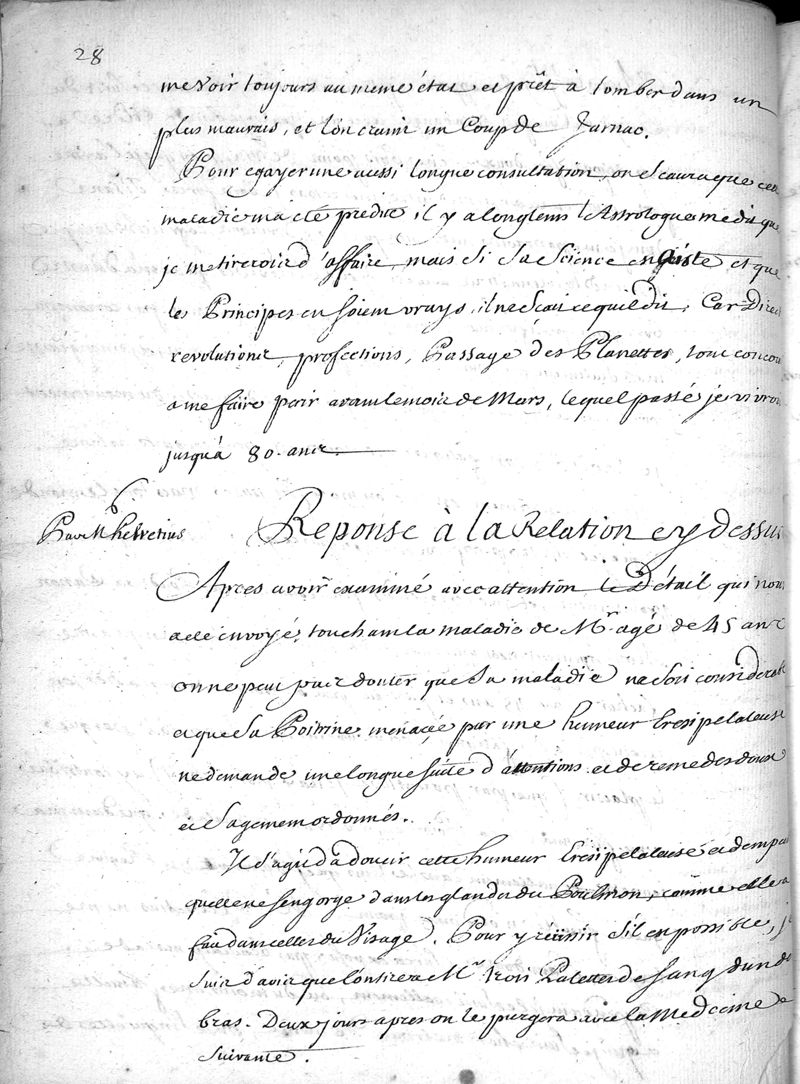 28
me voir toujours au meme état et prêt à tomber dans un
plus mauvais, et l'on craint un Coup de Jarnac.
Pour egayer une aussi longue consultation, on sçaura que cette
maladie m'a eté predite il y a longtems l'Astrologue me dit que
je me tirerois d'affaire, mais si sa Science en existe et que
les Principes en soient vrays, il ne sçait ce qu'il dit, Car Direct
revolutions, profections, Passage des Planettes, tout concou
a me faire perir avant le mois de Mars, lequel passé je vivrai
jusqu'à 80. ans.
Par Mr. helvetius
Reponse à la Relation cy dessus
Apres avoir examiné avec attention le Détail qui nous
a eté envoyé, touchant la maladie de Mr. agé de 45 ans
on ne peut pas douter que sa maladie ne soit considerable
et que sa Poitrine menaçée par une humeur Eresipelateuse
ne demande une longue suite d'attentions et de remedes doux
et sagement ordonnés.
Il s'agit d'adoucir cette humeur Eresipelateuse et d'empec
qu'elle ne s'engorge dans les glandes du Poulmon, comme elle a
fait dans celles du Visage. Pour y réussir s'il est possible, je
suis d'avis que l'on tire a Mr. trois Palettes de sang d'un des
bras. Deux jours apres on le purgera avec la Medecine
suivante.